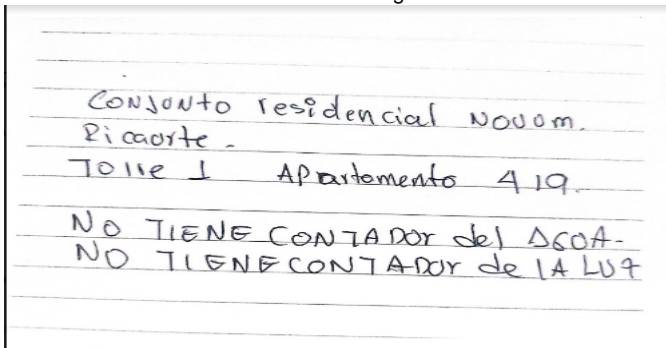 CONJUNto residencial NOVUM.
Ricaurte.
Torre 1 Apartamento 419.
NO TIENE CONTADOr del AGUA.
NO TIENE CONTADOr de lA LUZ